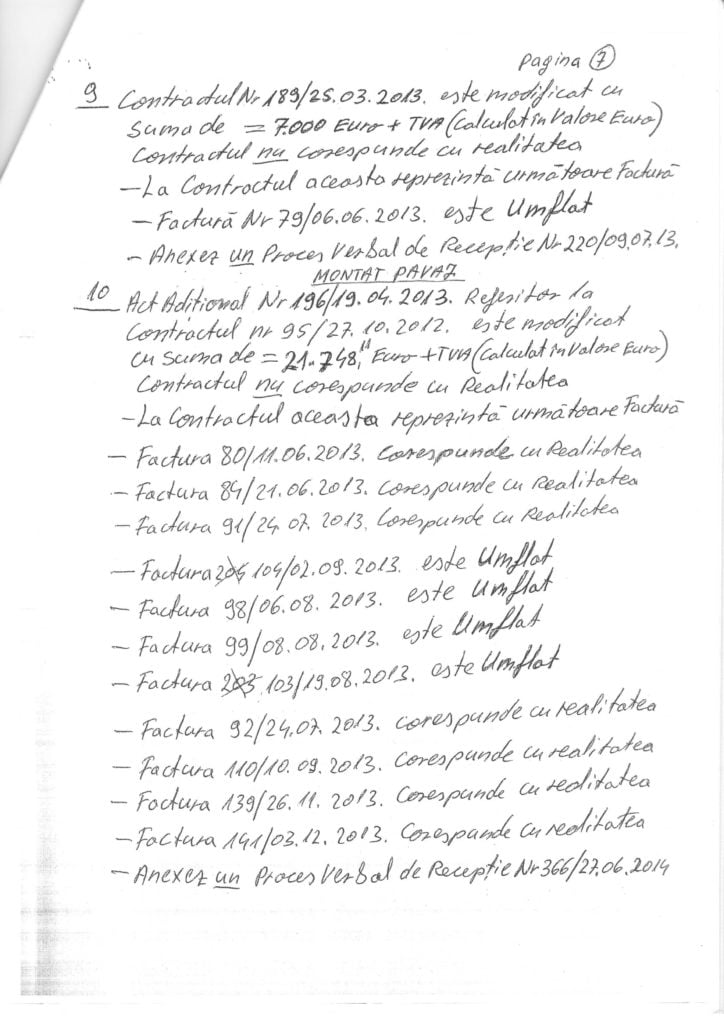 Pagina 7
9 Contractul Nr 189/25.03.2013. este modificat cu
Suma de = 7.000 Euro + TVA (Calculat în Valore Euro)
Contractul nu corespunde cu realitatea
- La Contractul aceasta reprezintă următoare Factură
- Factură Nr 79/06.06.2013. este Umflat
- Anexez un Proces Verbal de Recepție Nr 220/09.07.13.
MONTAT PAVAJ
10 Act Aditional Nr 196/19.04.2013. Referitor la
Contractul nr 95/27.10.2012. este modificat
cu suma de = 21.748,11 Euro + TVA (Calculat în Valore Euro)
Contractul nu corespunde cu Realitatea
- La Contractul aceasta reprezintă următoare Factură
- Factura 80/11.06.2013. Corespunde cu Realitatea
- Factura 84/21.06.2013. Corespunde cu Realitatea
- Factura 91/24.07.2013. Corespunde cu Realitatea
- Factura 104/02.09.2013. este Umflat
- Factura 98/06.08.2013. este Umflat
- Factura 99/08.08.2013. este Umflat
- Factura 103/19.08.2013. este Umflat
- Factura 92/24.07.2013. corespunde cu realitatea
- Factura 110/10.09.2013. Corespunde cu realitatea
- Factura 139/26.11.2013. Corespunde cu realitatea
- Factura 141/03.12.2013. Corespunde cu realitatea
- Anexez un Proces Verbal de Recepție Nr 366/27.06.2014